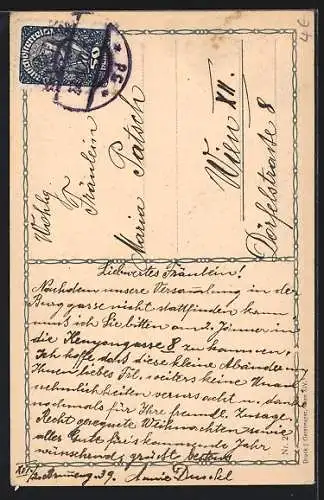 4€
Deutschösterreich
50
3d
Wohlg.
Fräulein
Maria Patsch
Wien XII.
Dörfelstrasse 8
Liebwertes Fräulein!
Nachdem unsere Versammlung in der
Burggasse nicht stattfinden kann
muß ich Sie bitten am 2. Jänner in
die Kenyongasse 8 zu kommen.
Ich hoffe daß diese kleine Abänderung
Ihnen liebes Frl. weiters keine Unan-
nehmlichkeiten verursacht u. danke
nochmals für Ihre freundl. Zusage.
Recht gesegnete Weihnachten sowie
alles Gute fürs kommende Jahr
wünschend, grüßt bestens
39.
Nr. 20